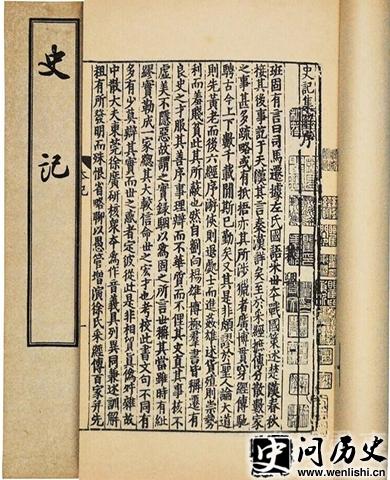 史記
史記集解序
班固有言曰司馬遷據左氏國語采世本戰國策述楚漢春秋
接其後事訖于天漢其言秦漢詳矣至於采經摭傳分散數家
之事甚多疎略或有抵捂亦其所涉獵者廣博貫穿經傳馳
騁古今上下數千載閒斯已勤矣又其是非頗謬於聖人論大道
則先黄老而後六經序游俠則退處士而進姦雄述貨殖則崇勢
利而羞賤貧此其所蔽也然自劉向楊雄博極羣書皆稱遷有
良史之才服其善序事理辯而不華質而不俚其文直其事核不
虛美不隱惡故謂之實録駰以為固之所言世稱其當雖時有紕
繆實勒成一家總其大較信命世之宏才也考校此書文句不同有
多有少莫辯其實而世之惑者定彼從此是非相貿真偽舛雜故
中散大夫東莞徐廣研核衆本為作音義具列異同兼述訓解
粗有所發明而殊恨省略聊以愚管增演徐氏采經傳百家并先
史 问历史
www.wenlishi.cn